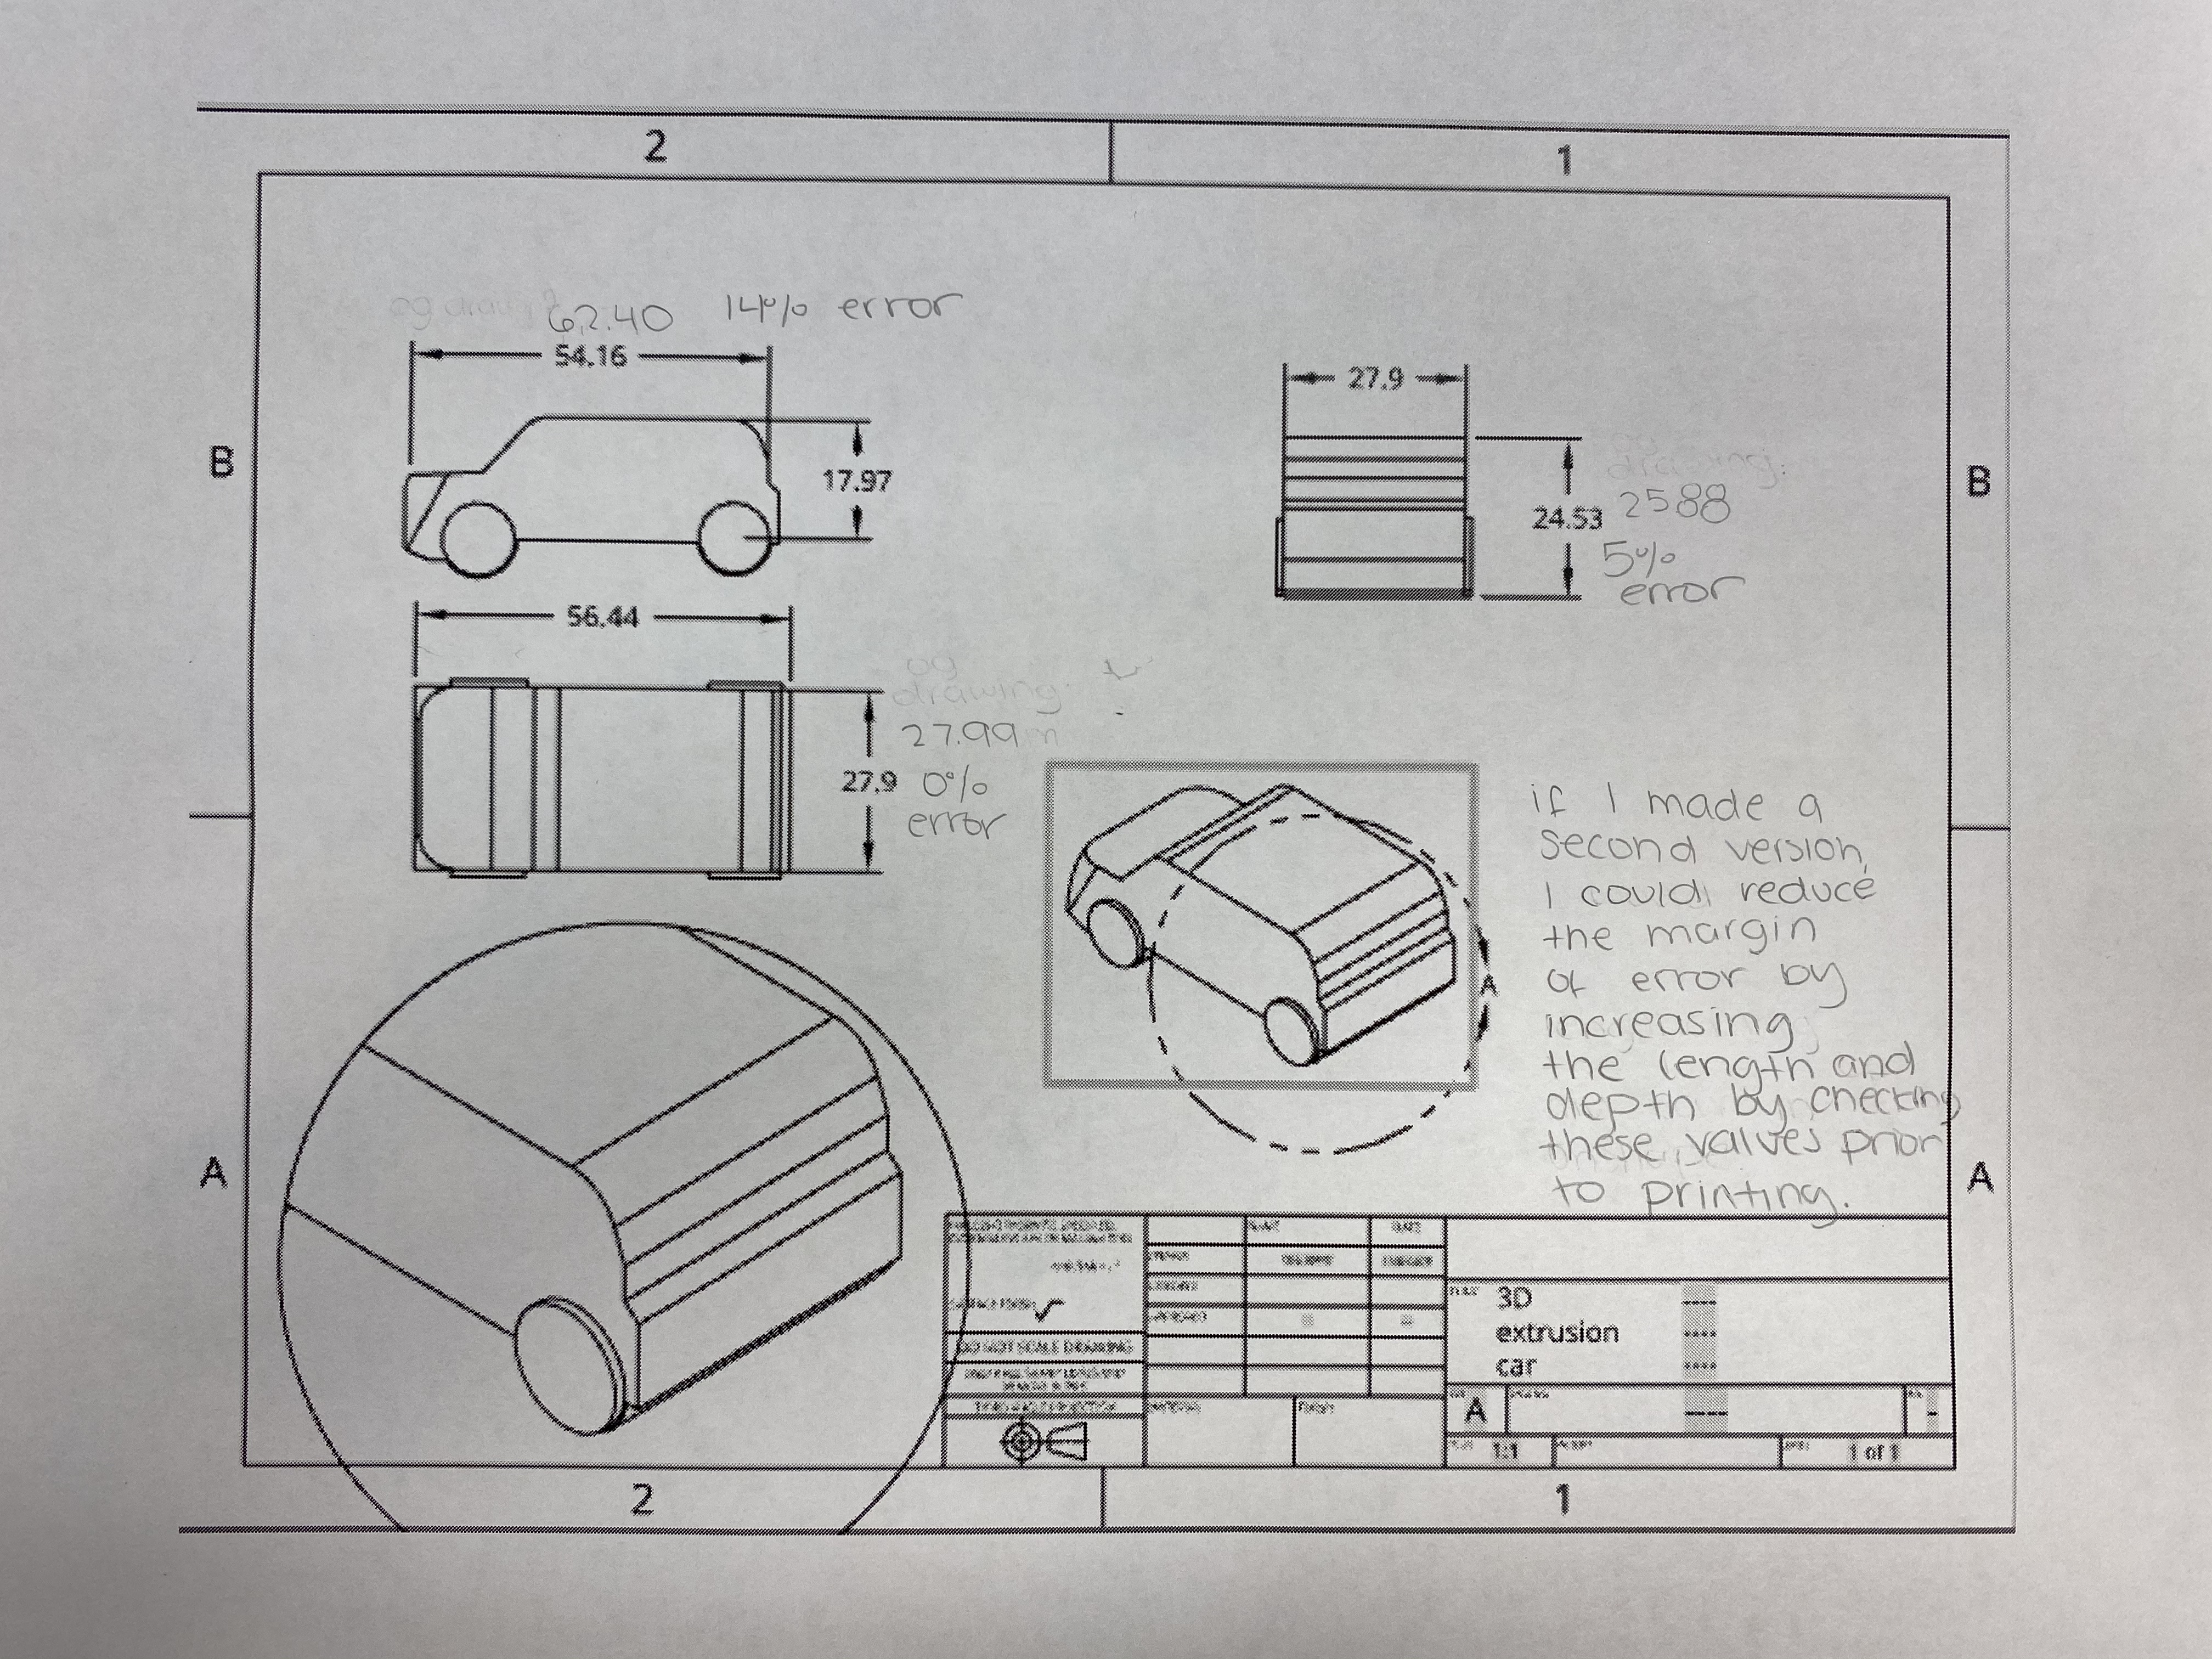 2
1
B
B
A
A
62.40 14% error
54.16
17.97
27.9
drawing:
24.53 2588
5%
error
56.44
og
drawing:
27.99
27.9 0%
error
if I made a
second version,
I could reduce
the margin
of error by
increasing
the length and
depth by checking
these values prior
to printing.
A
DO NOT SCALE DRAWING
3D
extrusion
car
A
1:1
1 of 1
2
1